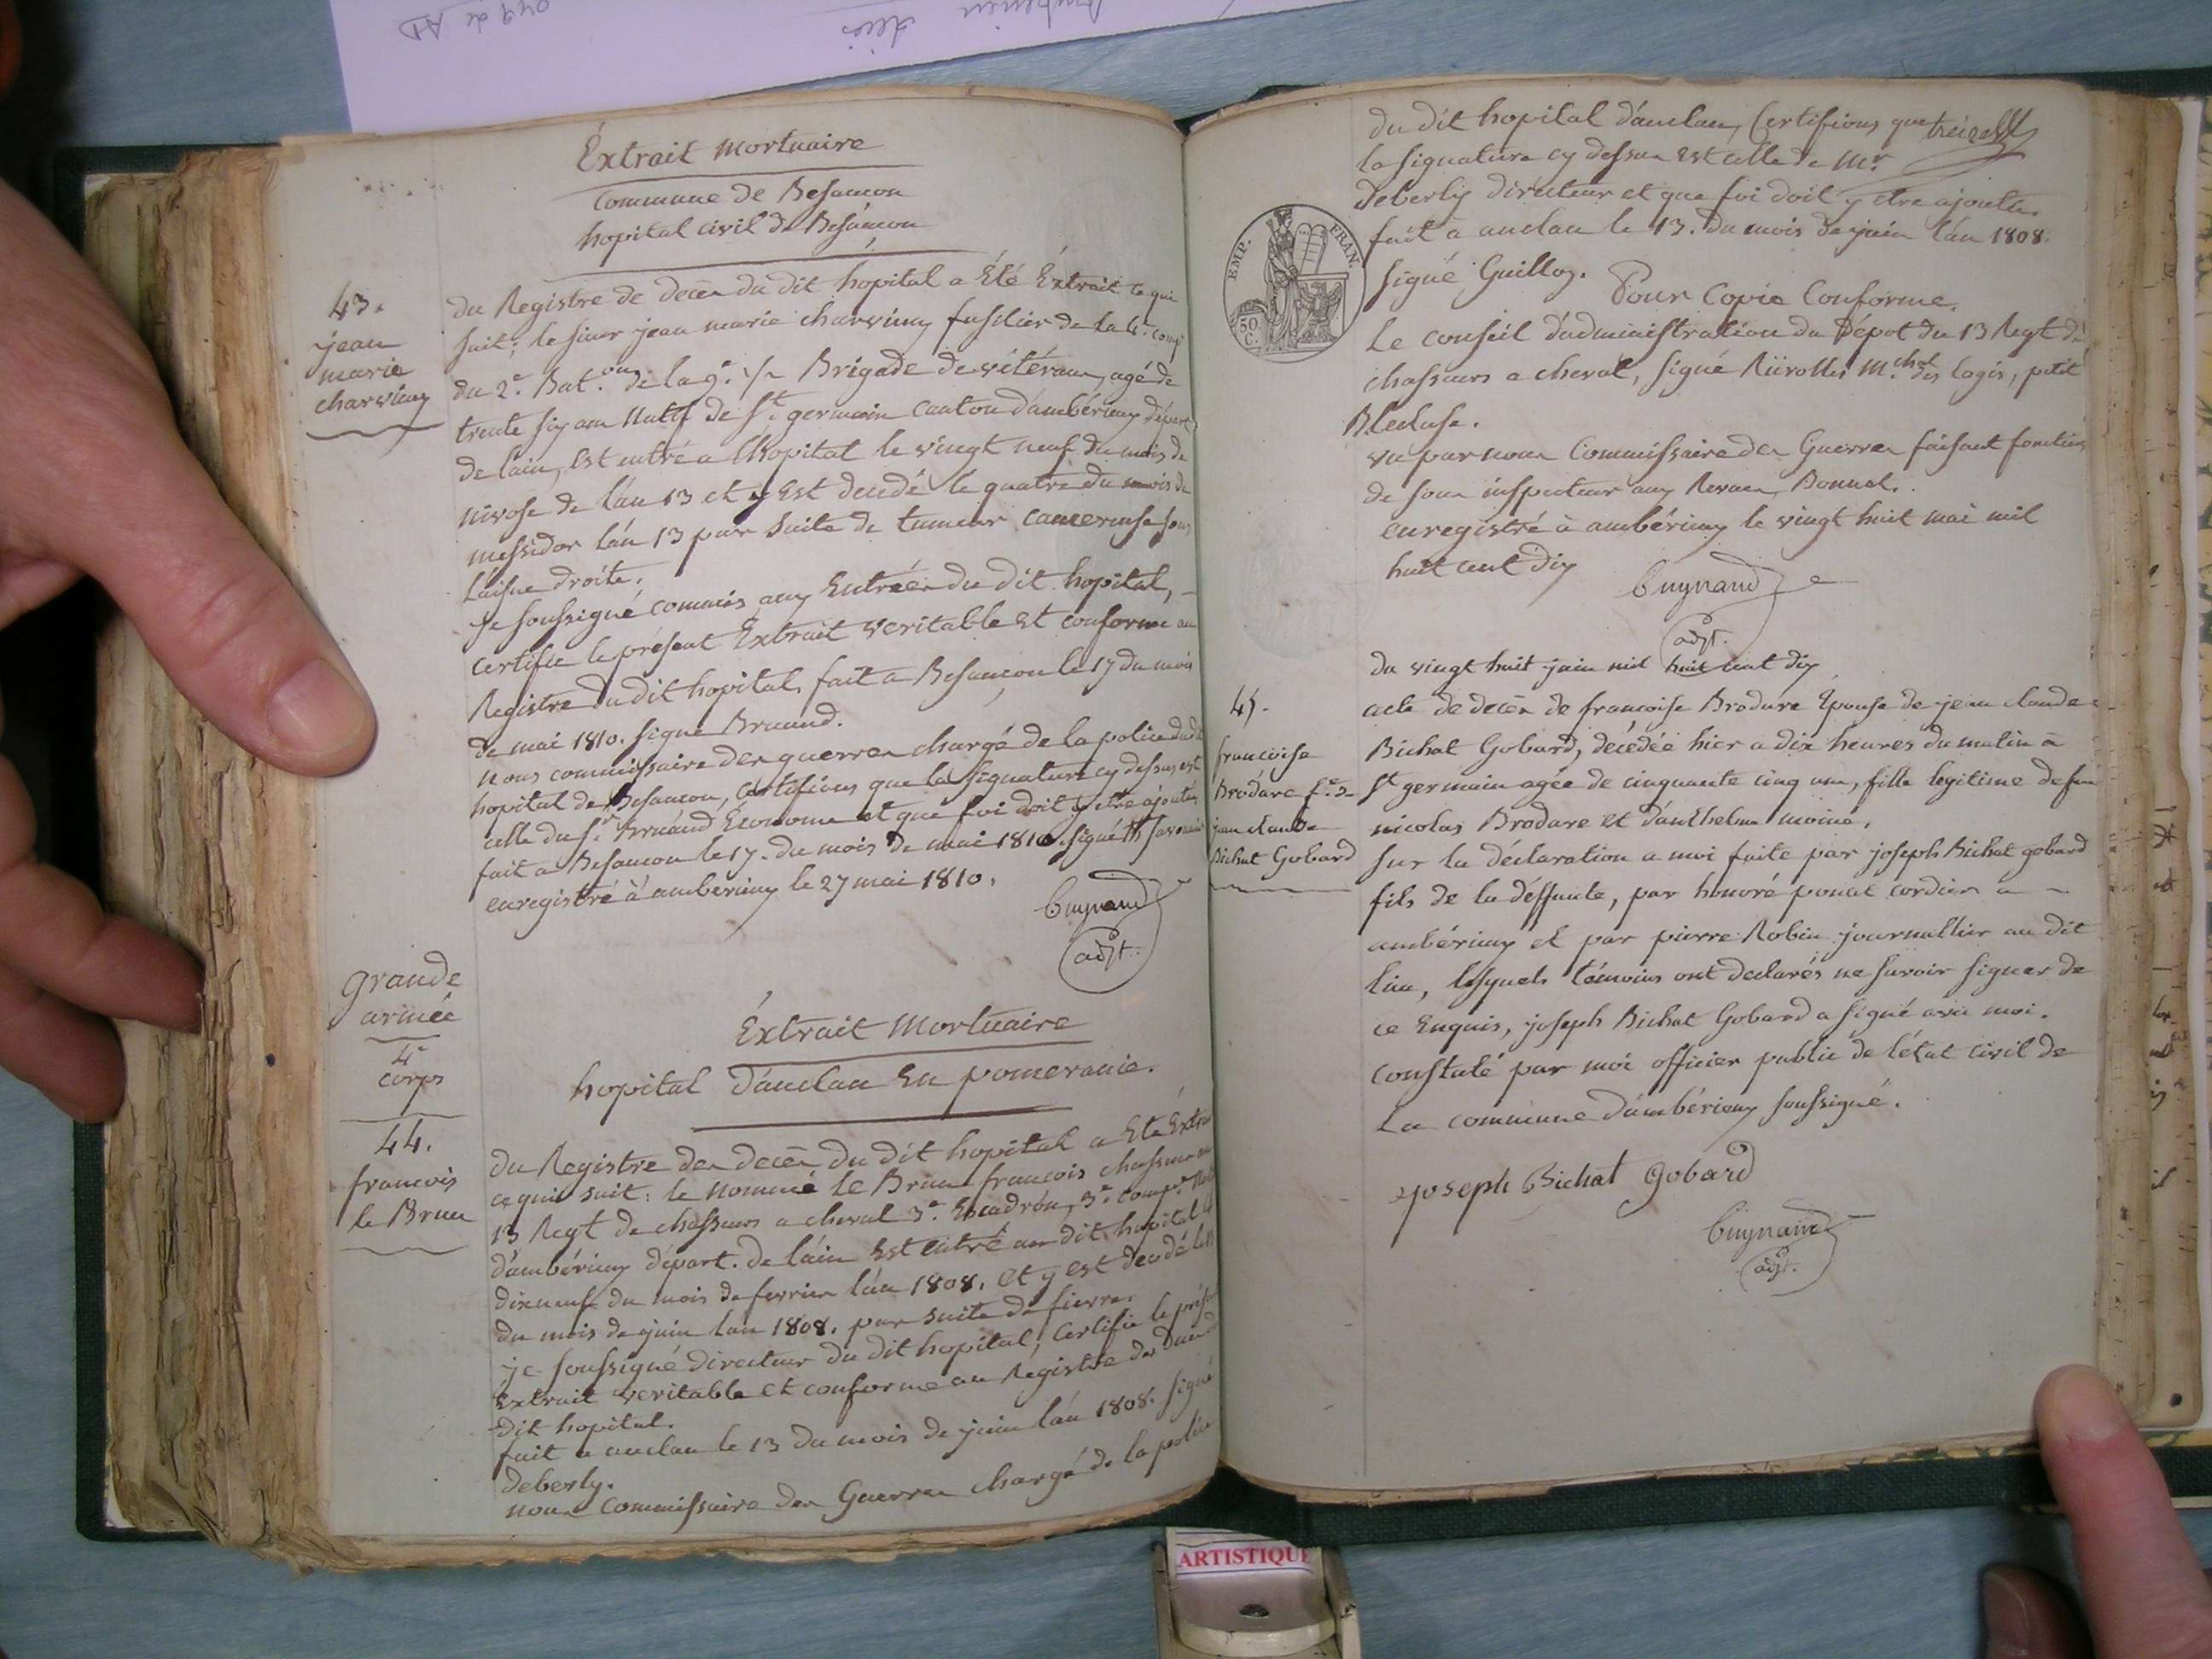 Extrait mortuaire
Commune de Besancon
hopital civil de Besancon
43.
jean
marie
charvieux
Du Registre de decès du dit hôpital a Eté Extrait ce qui
suit; le sieur jean marie charvieux fusilier de la 4e comp
du 2e Bat.on de la 9e 1/2 Brigade de vétérans, agé de
trente six ans natif de St germain canton d'ambérieux départ
de lain, Est entré a lhopital le vingt neuf du mois de
nivose de l'an 13 et y Est decedé le quatre du mois de
messidor l'an 13 par suite de tumeur cancereuse sous
laisne droite.
je soussigné commis aux Entrées du dit hopital,
certifie le présent Extrait veritable et conforme au
Registre du dit hopital, fait a Besancon le 17 du mois
de mai 1810. signé Bruand.
nous commissaire des guerres chargé de la police dudit
hopital de Besancon, certifions que la signature cy dessus est
celle du Sr Bruand Econome et que foi doit y etre ajoutée
fait a Besancon le 17. du mois de mai 1810. signé
enregistré à ambérieux le 27 mai 1810.
Guynand
adjt.
grande
armée
4e
corps
44.
francois
le Brun
Extrait Mortuaire
hopital d'anclam En pomeranie.
Du Registre des decès du dit hopital a Eté Extrait
ce qui suit: le nommé le Brun francois chasseur au
13 Regt de chasseurs a cheval 3e. Escadron, 3e. comp.e
d'ambérieux départ. de lain Est entré au dit hopital le
dixneuf du mois de fevrier l'an 1808. et y est decedé le
du mois de juin lan 1808. par suite de fievre.
je soussigné directeur du dit hopital, certifie le présent
Extrait veritable et conforme au Registre des
dit hopital.
fait a anclam le 13 du mois de juin l'an 1808. signé
deberly.
nous Commissaire des Guerres chargé de la police
du dit hopital d'anclam, Certifions que
la signature cy dessus est celle de Mr
deberly directeur et que foi doit y etre ajoutée
fait a anclam le 13. du mois de juin l'an 1808.
signé Guilloz.
EMP. FRAN.
50 C.
Pour Copie Conforme.
Le conseil d'administration du Dépot du 13 Regt de
chasseurs a cheval, signé M.chal des logis, petit
vu par nous Commissaire des Guerres faisant fonctions
de sous inspecteur aux Revues, Bonnal.
enregistré à ambérieux le vingt huit mai mil
huit cent dix
Guynand
adjt.
du vingt huit juin mil huit cent dix
45.
francoise
Brodare fe. de
jean claude
Bichat Gobard
acte de decès de francoise Brodare Epouse de jean claude
Bichat Gobard, decédée hier a dix heures du matin à
St germain agée de cinquante cinq ans, fille legitime de feu
nicolas Brodare et d'anthelma moine.
sur la déclaration a moi faite par joseph Bichat gobard
fils de la déffunte, par honoré ponat cordier a
ambérieux et par pierre Robin journallier au dit
lieu, lesquels témoins ont declarés ne savoir signer de
ce Enquis, joseph Bichat Gobard a signé avec moi.
constaté par moi officier public de l'état civil de
la commune d'ambérieux soussigné.
joseph Bichat gobard
Guynand
adjt.
ARTISTIQUE